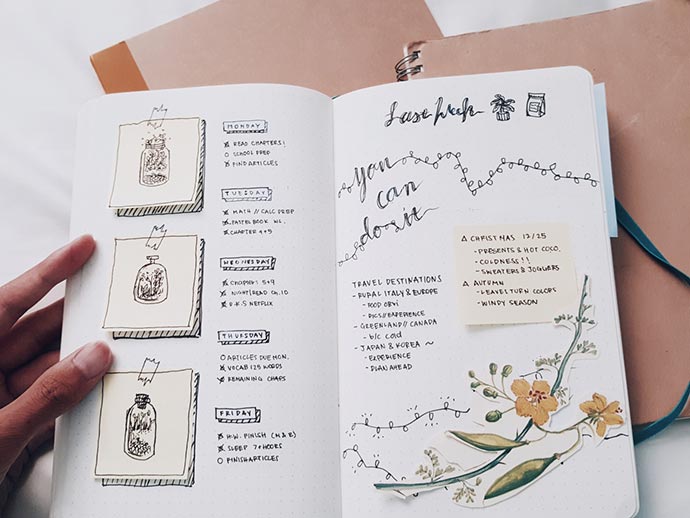 MONDAY
READ CHAPTERS!
SCHOOL PREP
FIND ARTICLES
TUESDAY
MATH // CALC PREP
PASTELBOOK
CHAPTER 4+5
WEDNESDAY
CHAPTERS 5+9
NIGHT | READ CH. 10
R.K.S NETFLIX
THURSDAY
ARTICLES DUE MON.
VOCAB 125 WORDS
REMAINING CHAPS
FRIDAY
H.W. FINISH (M & E)
SLEEP 7+ HOURS
FINISH ARTICLES
Last Week
you
can
do it
Δ CHRISTMAS 12/25
- PRESENTS & HOT COCO.
- COLDNESS!!
- SWEATERS & JOGGERS
Δ AUTUMN
- LEAVES TURN COLORS
- WINDY SEASON
TRAVEL DESTINATIONS
- RURAL ITALY & EUROPE
- FOOD OBVI
- PICS // EXPERIENCE
- GREENLAND // CANADA
- b/c cold
- JAPAN & KOREA ~
- EXPERIENCE
- PLAN AHEAD